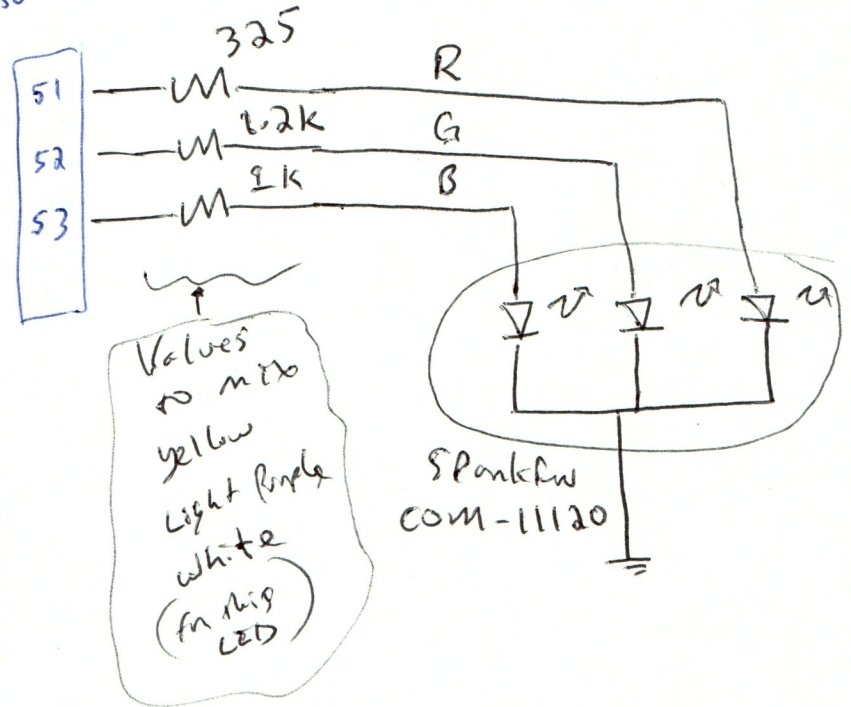 325
51
R
1.2k
52
G
1k
53
B
Values
to mix
yellow
Light Purple
white
(for this
LED)
Sparkfun
COM-11120